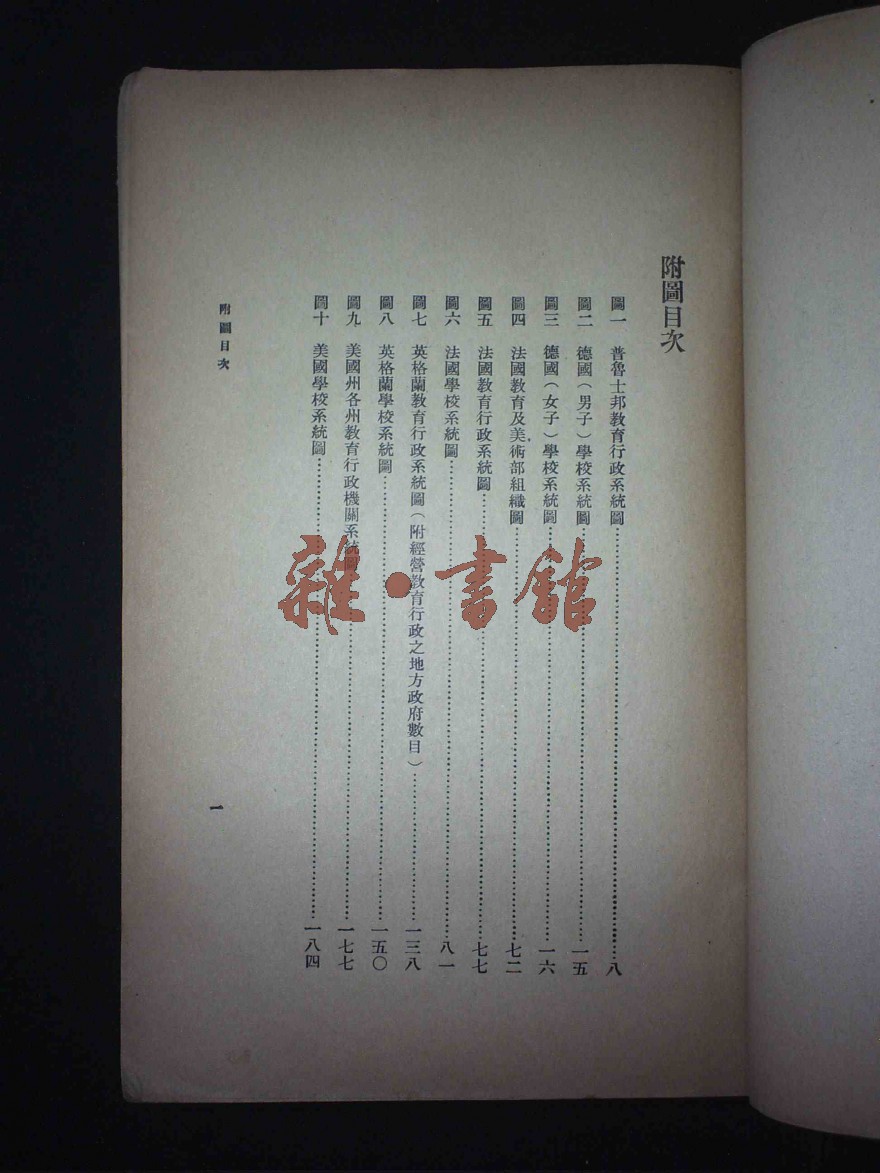 附圖目次
圖一　普魯士邦教育行政系統圖……八
圖二　德國（男子）學校系統圖……一五
圖三　德國（女子）學校系統圖……一六
圖四　法國教育及美術部組織圖……七二
圖五　法國教育行政系統圖……七七
圖六　法國學校系統圖……八一
圖七　英格蘭教育行政系統圖（附經營教育行政之地方政府數目）……一三八
圖八　英格蘭學校系統圖……一五〇
圖九　美國州各州教育行政機關系統圖……一七七
圖十　美國學校系統圖……一八四
附圖目次
一
雜·書館